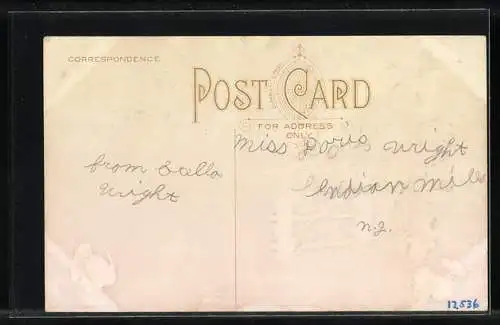 CORRESPONDENCE
POST CARD
FOR ADDRESS
ONLY
Miss Doris Wright
from Stella
Wright
Indian Mills
N.J.
12536